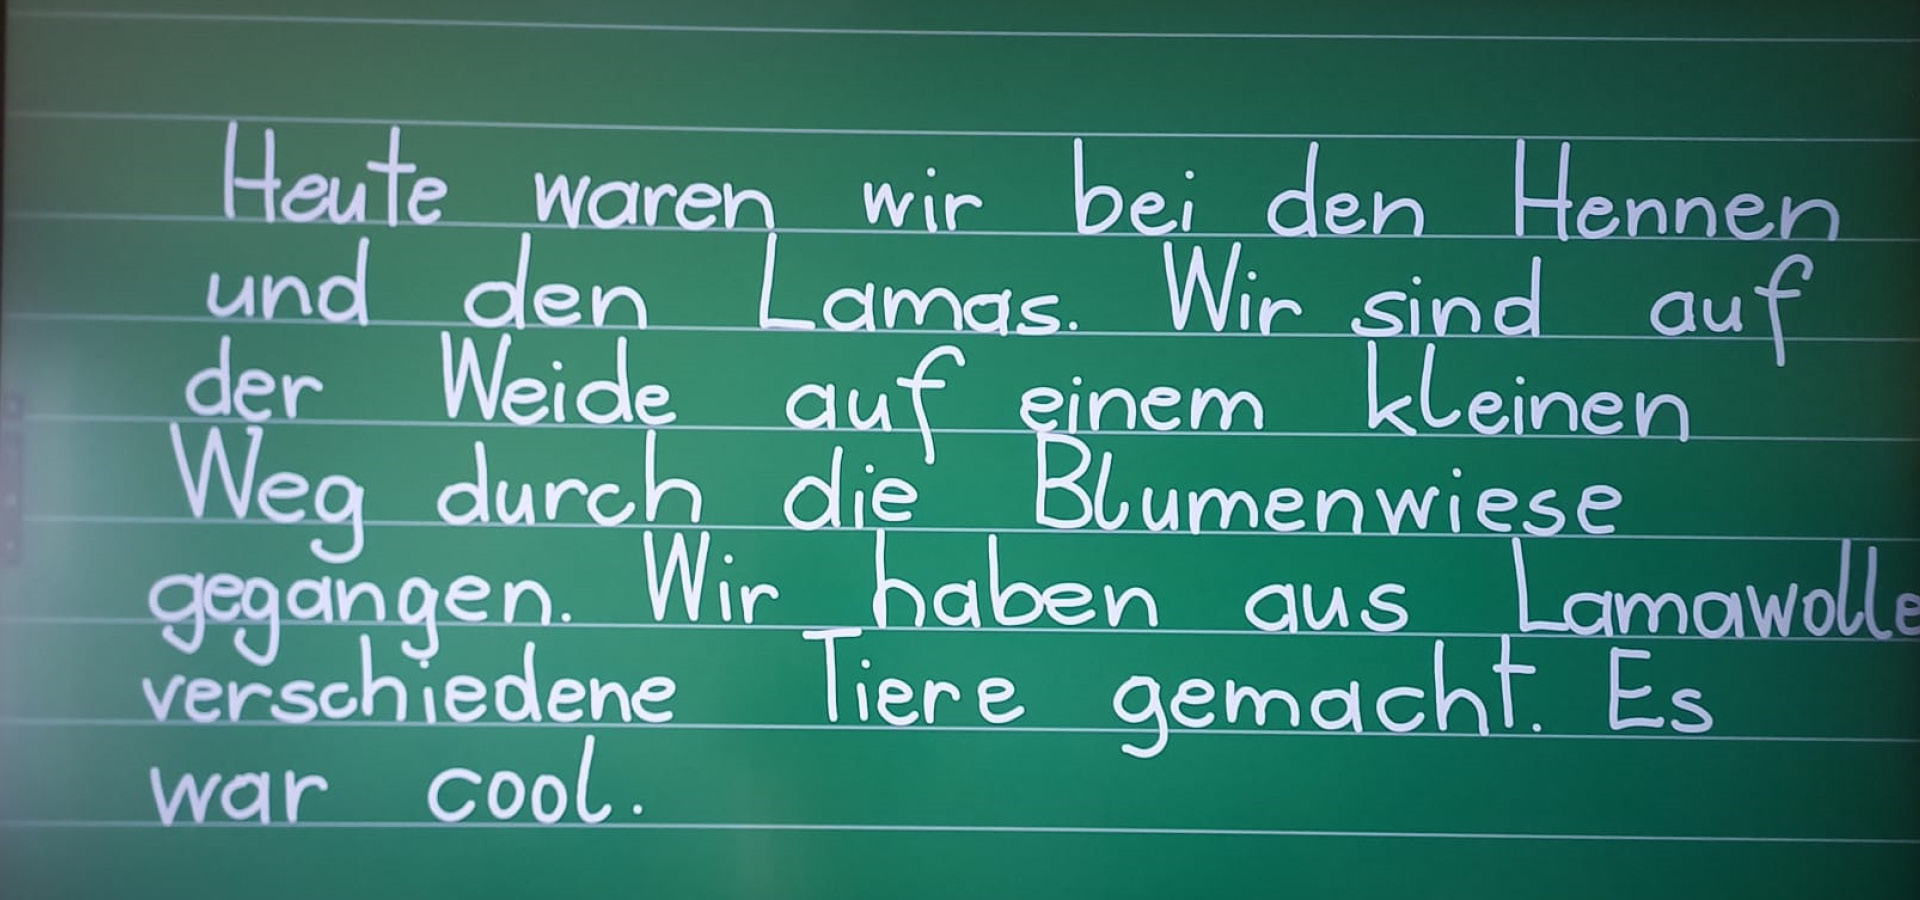 Heute waren wir bei den Hennen
und den Lamas. Wir sind auf
der Weide auf einem kleinen
Weg durch die Blumenwiese
gegangen. Wir haben aus Lamawolle
verschiedene Tiere gemacht. Es
war cool.